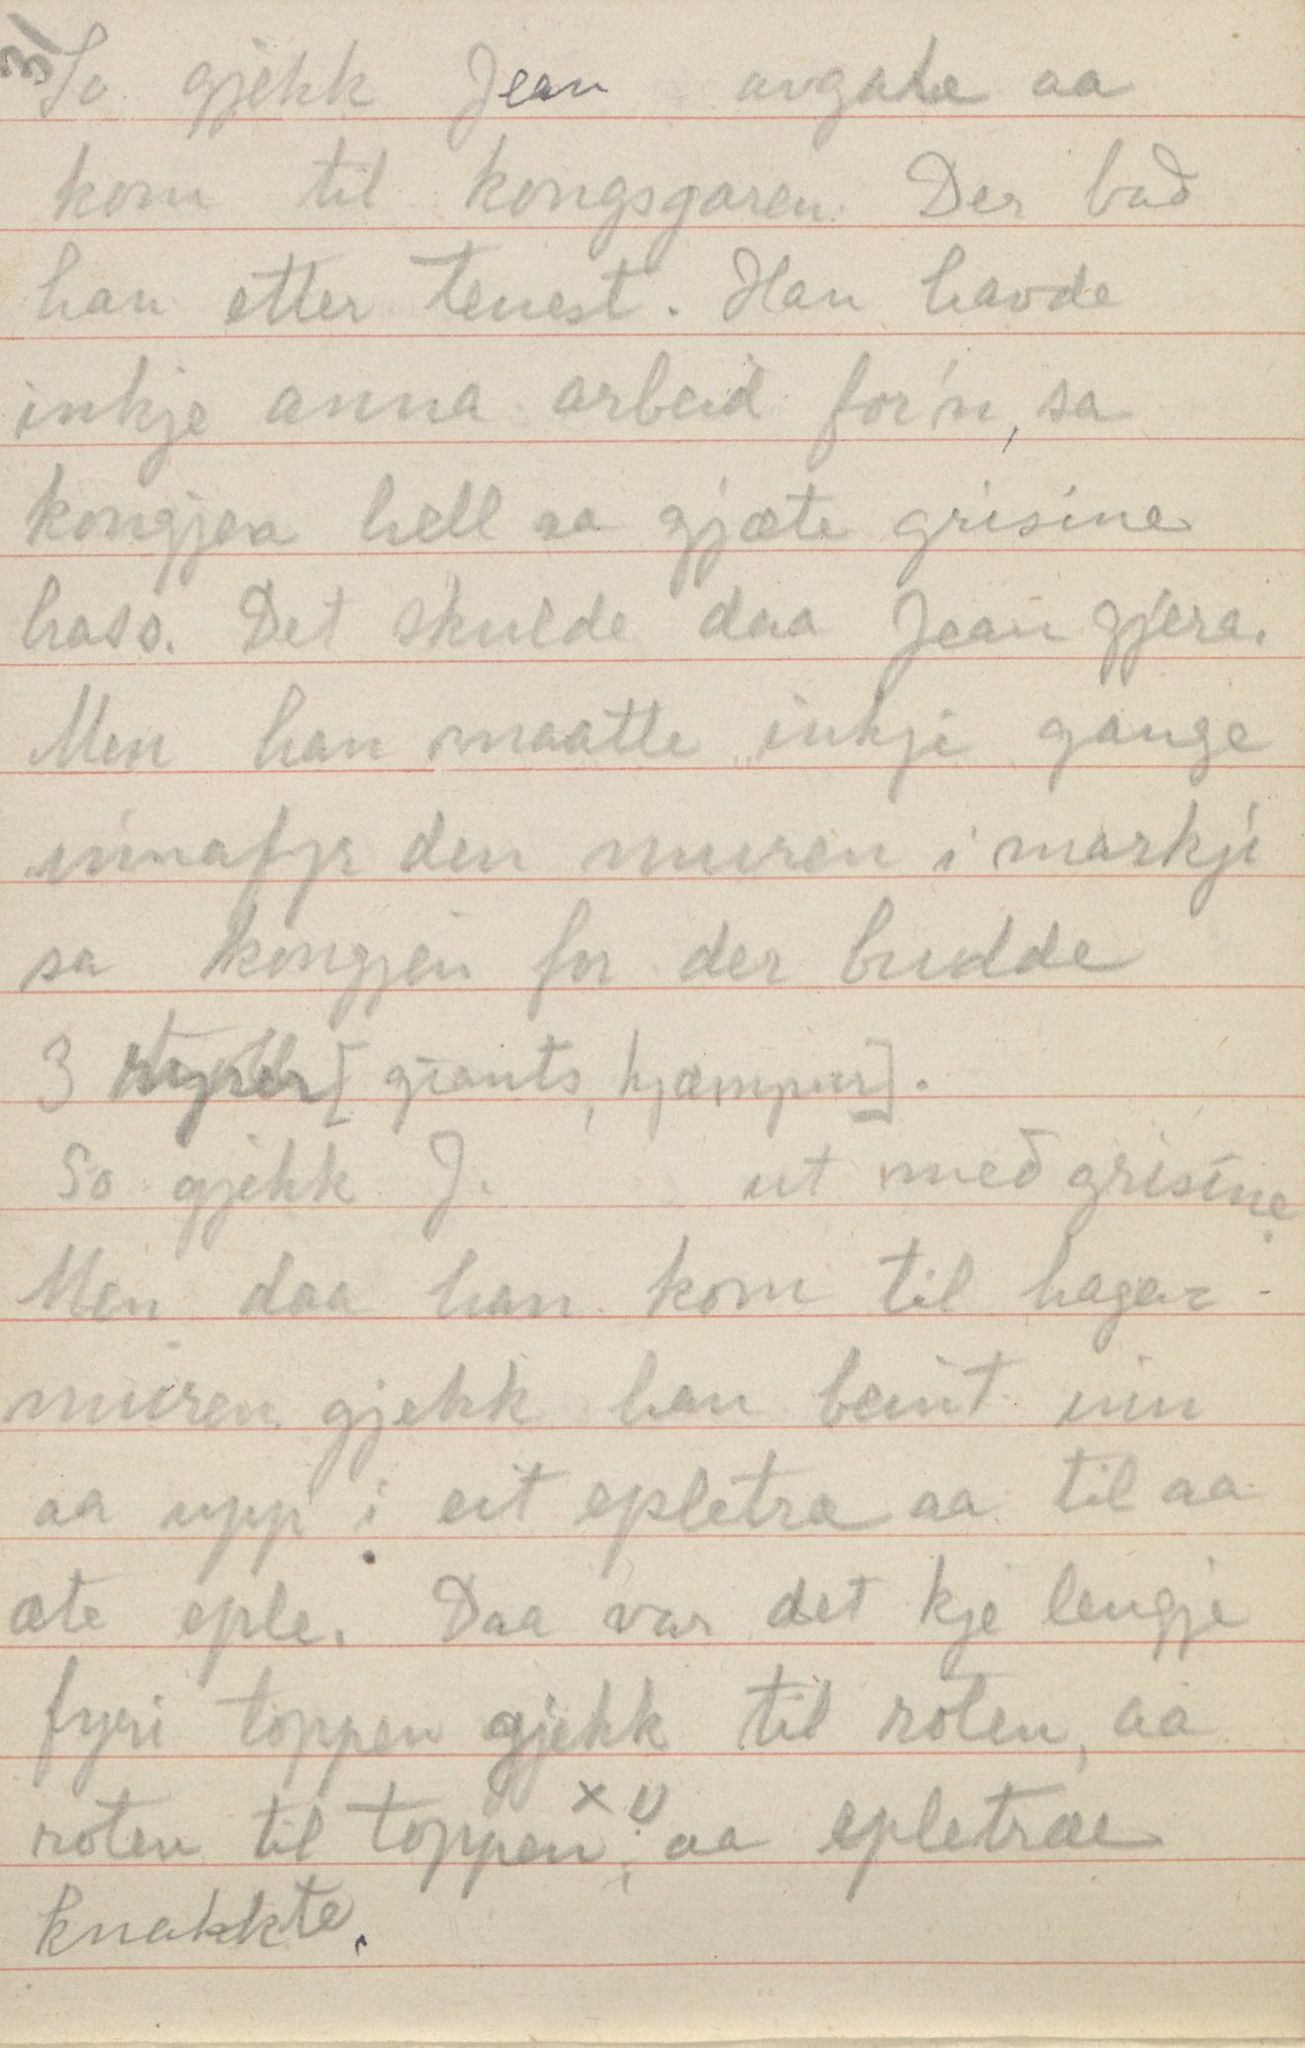 3/
So gjekk Jean avgate aa
kom til kongsgaren. Der bad
han etter tenest. Han havde
inkje anna arbeid for'n, sa
kongjen hell aa gjæte grisine
hass. Det skulde daa Jean gjera.
Men han maatte inkje gange
innafyr den muren i markji
sa kongjen for der budde
3 [giants, kjæmpur].
So gjekk J. ut med grisine.
Men daa han kom til hage-
muren gjekk han beint inn
aa upp i eit epletræ aa til aa
æte eple. Daa var det kje lengje
fyri toppen gjekk til roten, aa
roten til toppen x 1), aa epletræe
knakkte.